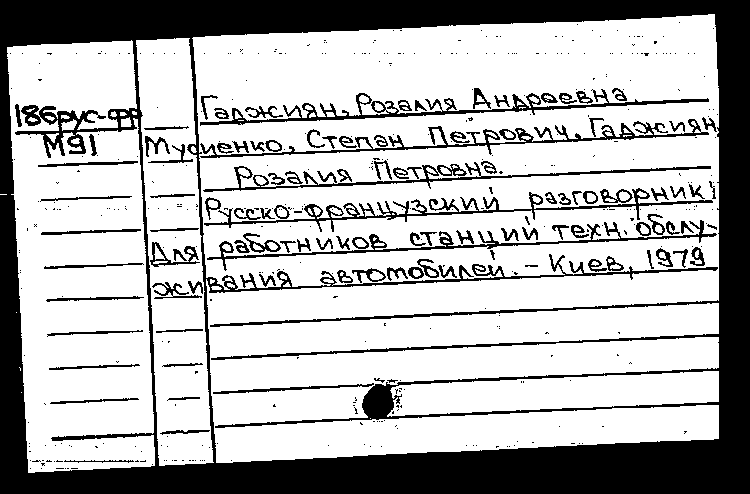 186рус-фр Гаджиян, Розалия Андреевна.
М91 Мусиенко, Степан Петрович, Гаджиян,
Розалия Петровна.
Русско-французский разговорник:
Для работников станций техн. обслу-
живания автомобилей. - Киев, 1979